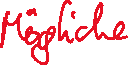 Mögliche